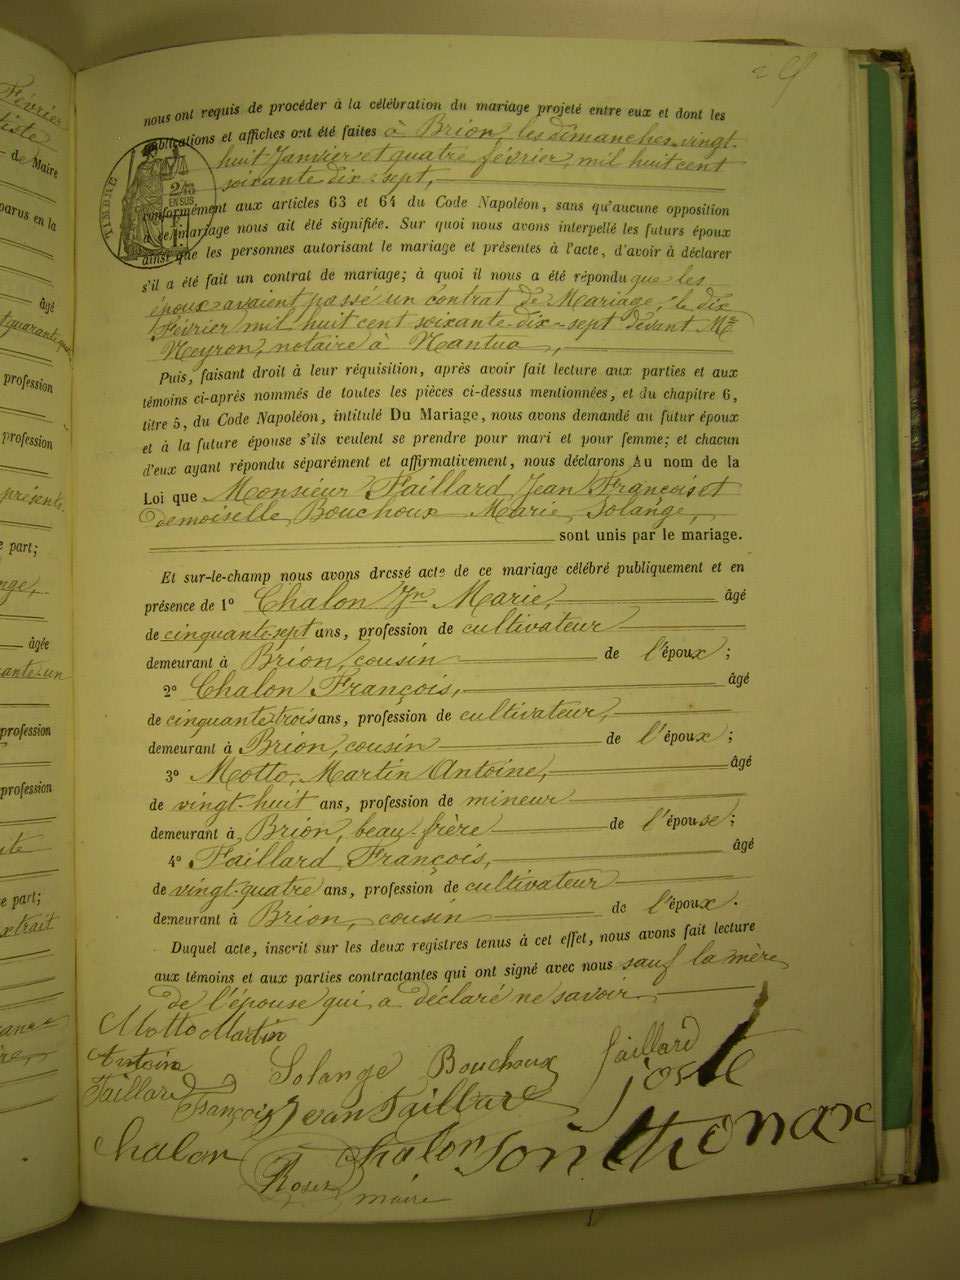 nous ont requis de procéder à la célébration du mariage projeté entre eux et dont les
publications et affiches ont été faites à Brion, les dimanches vingt-
huit Janvier et quatre février mil huit cent
soixante dix-sept,
conformément aux articles 63 et 64 du Code Napoléon, sans qu'aucune opposition
à ce mariage nous ait été signifiée. Sur quoi nous avons interpellé les futurs époux
ainsi que les personnes autorisant le mariage et présentes à l'acte, d'avoir à déclarer
s'il a été fait un contrat de mariage; à quoi il nous a été répondu que les
époux avaient passé un contrat de Mariage, le dix
Février mil huit cent soixante-dix-sept devant Me
Neyron, notaire à Nantua,
Puis, faisant droit à leur réquisition, après avoir fait lecture aux parties et aux
témoins ci-après nommés de toutes les pièces ci-dessus mentionnées, et du chapitre 6,
titre 5, du Code Napoléon, intitulé Du Mariage, nous avons demandé au futur époux
et à la future épouse s'ils veulent se prendre pour mari et pour femme; et chacun
d'eux ayant répondu séparément et affirmativement, nous déclarons Au nom de la
Loi que Monsieur Faillard Jean François et
demoiselle Bouchoux Marie Solange,
sont unis par le mariage.
Et sur-le-champ nous avons dressé acte de ce mariage célébré publiquement et en
présence de 1° Chalon Jn Marie, âgé
de cinquante-sept ans, profession de cultivateur
demeurant à Brion, cousin de l'époux;
2° Chalon François, âgé
de cinquante-trois ans, profession de cultivateur,
demeurant à Brion, cousin de l'époux;
3° Motto, Martin Antoine, âgé
de vingt-huit ans, profession de mineur
demeurant à Brion, beau-frère de l'épouse;
4° Faillard François, âgé
de vingt-quatre ans, profession de cultivateur
demeurant à Brion, cousin de l'époux.
Duquel acte, inscrit sur les deux registres tenus à cet effet, nous avons fait lecture
aux témoins et aux parties contractantes qui ont signé avec nous sauf la mère
de l'épouse qui a déclaré ne savoir
Motto Martin
Antoine
Solange Bouchoux faillard
Faillard François Jean Faillard joste
Chalon Chalon Sonthonax
Rosier maire
TIMBRE
2/10
EN SUS
Février
de Maire
parus en la
âgé
profession
profession
présents
part;
âgée
profession
profession
part;
extrait